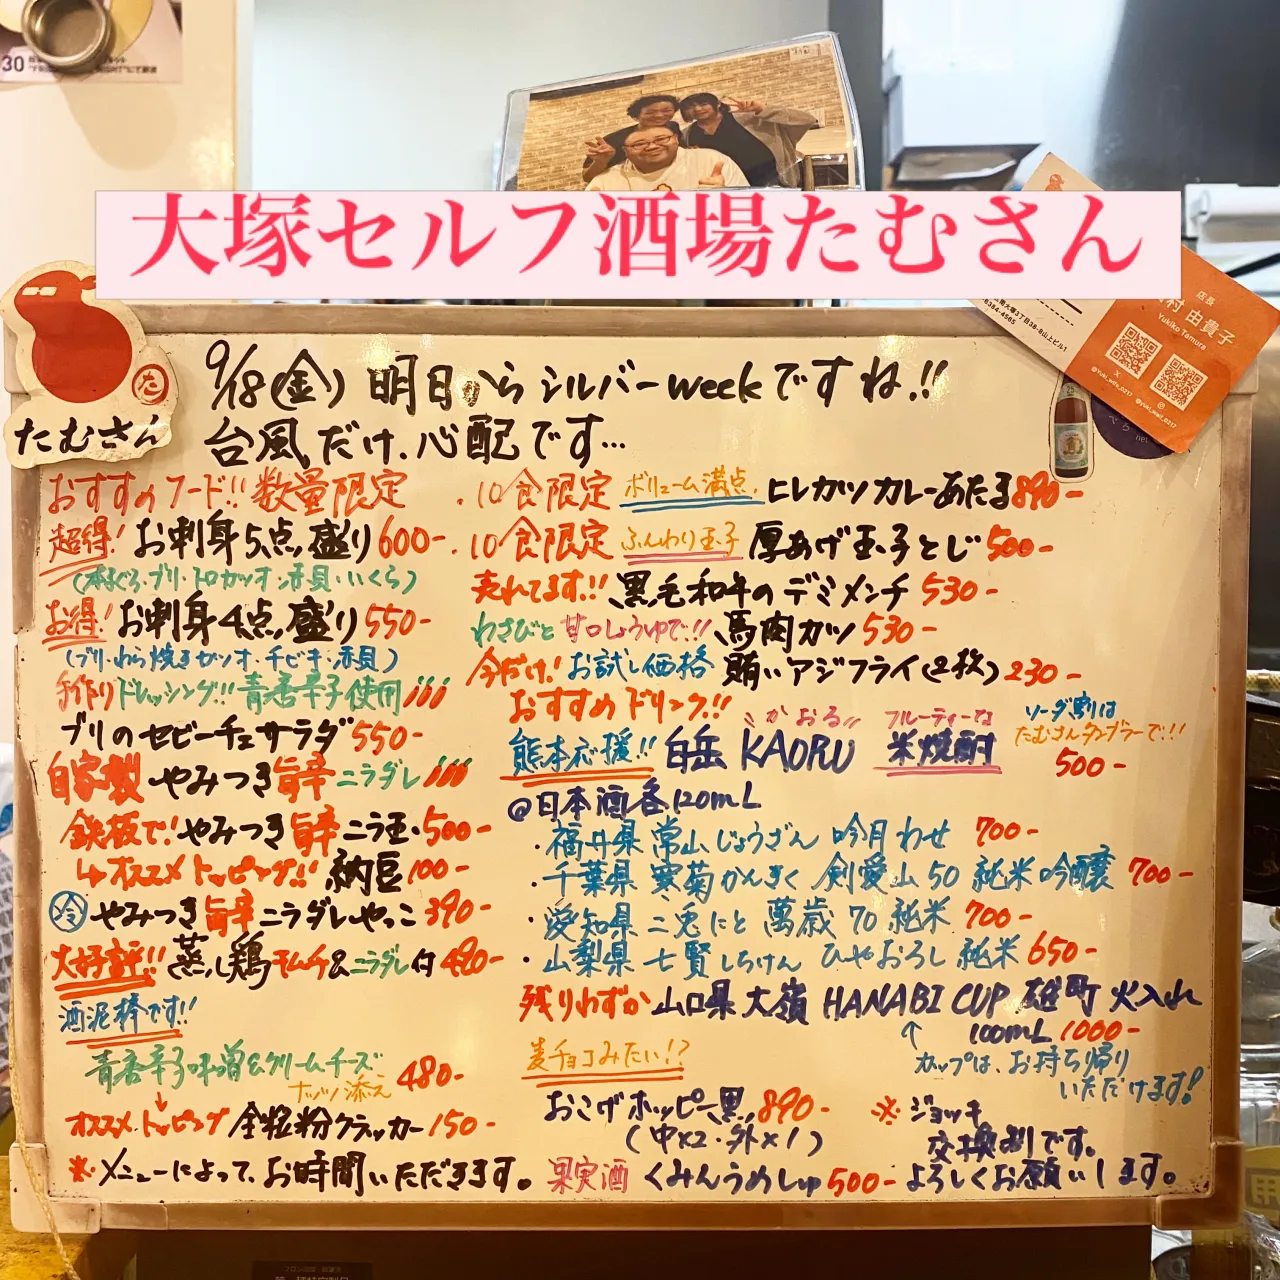 大塚セルフ酒場たむさん
30
店長
村 由貴子
Yukiko Tamura
@yuki_wifs_0217
たむさん
9/18(金) 明日からシルバーweekですね!!
台風だけ、心配です…
おすすめフード!! 数量限定
超得! お刺身5点盛り600-
(本まぐろ・ブリ・トロカツオ・赤貝・いくら)
お得! お刺身4点盛り550-
(ブリ・わら焼きカツオ・チビキ・赤貝)
手作りドレッシング!! 青唐辛子使用
ブリのセビーチェサラダ550-
自家製 やみつき旨辛ニラダレ
鉄板で! やみつき旨辛ニラ玉・500-
↳オススメトッピング!! 納豆100-
冷 やみつき旨辛ニラダレやっこ390-
大好評!! 蒸し鶏キムチ&ニラダレ付480-
酒泥棒です!!
青唐辛子味噌&クリームチーズ
ナッツ添え 480-
オススメトッピング 全粒粉クラッカー150-
※メニューによって、お時間いただきます。
・10食限定 ボリューム満点 ヒレカツカレーあたま890-
・10食限定 ふんわり玉子 厚あげ玉子とじ500-
売れてます!! 黒毛和牛のデミメンチ530-
わさびと甘口しょうゆで!! 馬肉カツ530-
今だけ! お試し価格 賄いアジフライ(2枚)230-
おすすめドリンク!!
熊本応援!! 白岳 KAORU 米焼酎
かおる
フルーティーな
ソーダ割は
たむさんタンブラーで!!
500-
@日本酒各120mL
・福井県 常山じょうざん 吟月わせ 700-
・千葉県 寒菊かんきく 剣愛山50 純米吟醸 700-
・愛知県 二兎にと 萬歳70 純米 700-
・山梨県 七賢しちけん ひやおろし 純米 650-
残りわずか 山口県 大嶺 HANABI CUP 雄町 火入れ
100mL 1000-
↑
カップは、お持ち帰り
いただけます!
麦チョコみたい!?
おこげホッピー黒 890-
(中×2・外×1)
※ジョッキ
交換制です。
よろしくお願いします。
果実酒 くみんうめしゅ500-